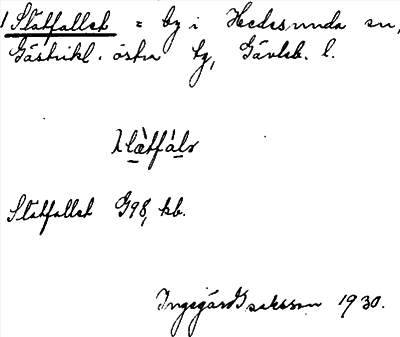 1 Slåtfallet = by i Hedesunda sn,
Gästrikl. östra tg, Gävleb. l.
Slåtfallet G98, kb.
Ingegärd Isaksson 1930.